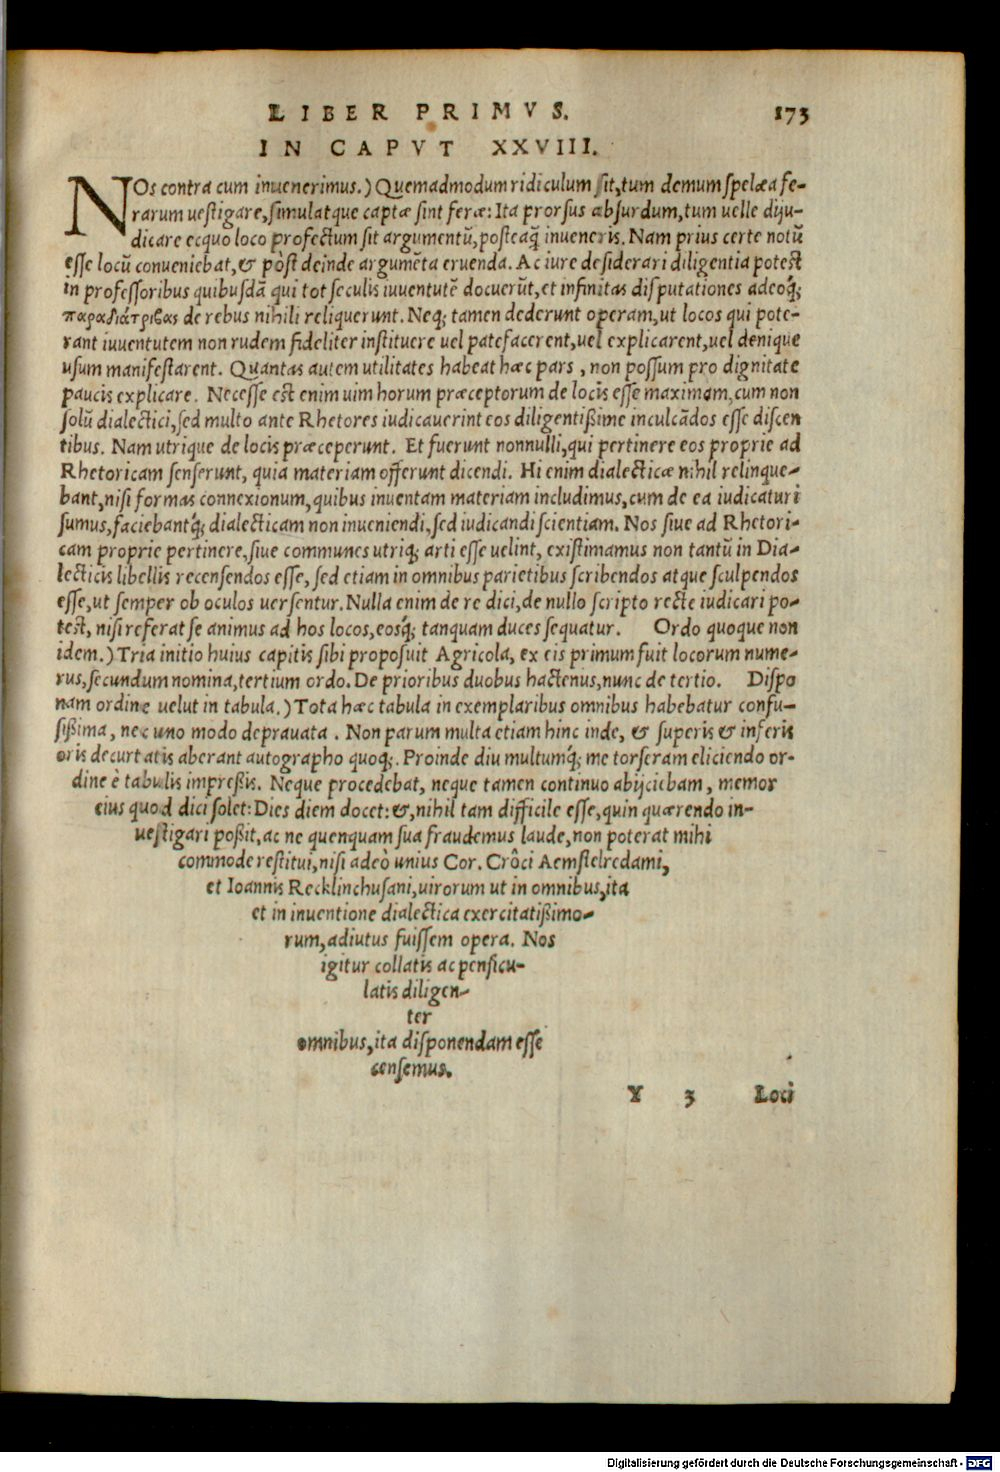 LIBER PRIMVS. 173
IN CAPVT XXVIII.
NOs contra cum inuenerimus.) Quemadmodum ridiculum sit, tum demum spelæa fe-
rarum uestigare, simulatque captæ sint feræ: Ita prorsus absurdum, tum uelle diju-
dicare ecquo loco profectum sit argumentũ, posteaq̃ inueneris. Nam prius certe notũ
esse locũ conueniebat, & pòst deinde argumẽta eruenda. Ac iure desiderari diligentia potest
in professoribus quibusdã qui tot seculis iuuentutẽ docuerũt, et infinitas disputationes adeoq́;
παραδιάτριβας de rebus nihili reliquerunt. Neq; tamen dederunt operam, ut locos qui pote-
rant iuuentutem non rudem fideliter instituere uel patefacerent, uel explicarent, uel denique
usum manifestarent. Quantas autem utilitates habeat hæc pars, non possum pro dignitate
paucis explicare. Necesse est enim uim horum præceptorum de locis esse maximam, cum non
solũ dialectici, sed multo ante Rhetores iudicauerint eos diligentißime inculcãdos esse discen
tibus. Nam utrique de locis præceperunt. Et fuerunt nonnulli, qui pertinere eos proprie ad
Rhetoricam senserunt, quia materiam offerunt dicendi. Hi enim dialecticæ nihil relinque-
bant, nisi formas connexionum, quibus inuentam materiam includimus, cum de ea iudicaturi
sumus, faciebantq́; dialecticam non inueniendi, sed iudicandi scientiam. Nos siue ad Rhetori-
cam proprie pertinere, siue communes utriq; arti esse uelint, existimamus non tantũ in Dia-
lecticis libellis recensendos esse, sed etiam in omnibus parietibus scribendos atque sculpendos
esse, ut semper ob oculos uersentur. Nulla enim de re dici, de nullo scripto recte iudicari po-
test, nisi referat se animus ad hos locos, eosq́; tanquam duces sequatur. Ordo quoque non
idem.) Tria initio huius capitis sibi proposuit Agricola, ex eis primum fuit locorum nume-
rus, secundum nomina, tertium ordo. De prioribus duobus hactenus, nunc de tertio. Dispo
nam ordine uelut in tabula.) Tota hæc tabula in exemplaribus omnibus habebatur confu-
sißima, nec uno modo deprauata. Non parum multa etiam hinc inde, & superis & inferis
oris decurtatis aberant autographo quoq;. Proinde diu multumq́; me torseram eliciendo or-
dine è tabulis impreßis. Neque procedebat, neque tamen continuo abijciebam, memor
eius quod dici solet: Dies diem docet: &, nihil tam difficile esse, quin quærendo in-
uestigari poßit, ac ne quenquam sua fraudemus laude, non poterat mihi
commode restitui, nisi adeò unius Cor. Crôci Aemstelredami,
et Ioannis Recklinchusani, uirorum ut in omnibus, ita
et in inuentione dialectica exercitatißimo-
rum, adiutus fuissem opera. Nos
igitur collatis ac pensicu-
latis diligen-
ter
omnibus, ita disponendam esse
censemus.
Y 3 Loci
Digitalisierung gefördert durch die Deutsche Forschungsgemeinschaft - DFG